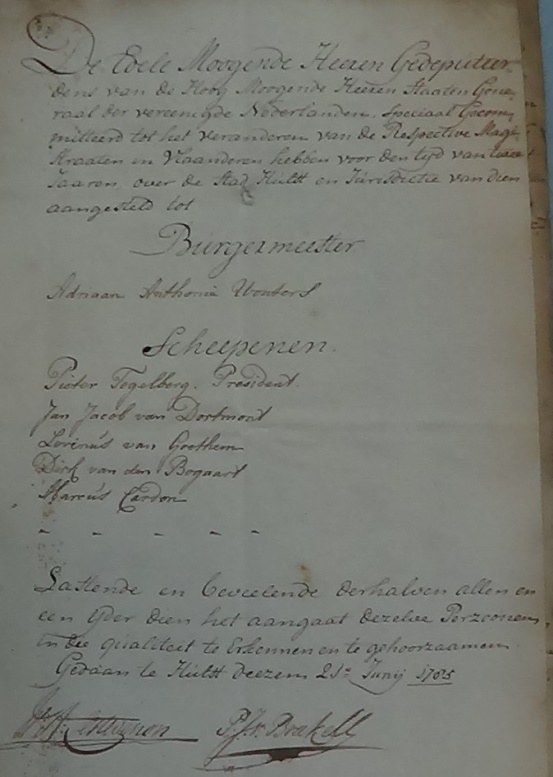 De Edele Moogende Heeren Gedeputeer-
dens van de Hoog Moogende Heeren Staaten Gene-
raal der vereenigde Nederlanden, Speciaal Gecom-
mitteerd tot het veranderen van de Respective Magi-
straaten in Vlaanderen hebben voor den tijd van twee
Jaaren, over de Stad Hulst en Jurisdictie van dien
aangesteld tot
Burgermeester
Adriaan Anthonie Wouters
Scheepenen.
Pieter Tegelberg. President.
Jan Jacob van Dortmont
Livinus van Grethem
Dirk van den Bogaart
Marcus Cardon
- - - - -
Lastende en beveelende derhalven allen en
een yder dien het aangaat dezelve Perzoonen,
in die qualiteit te Erkennen en te gehoorzaamen.
Gedaan te Hulst deezen 21e Junij
Brakell